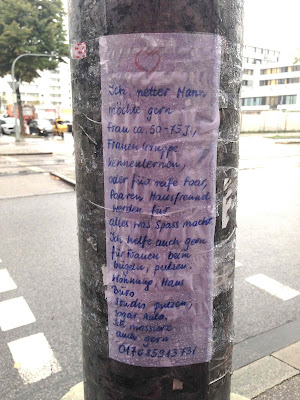 Ich, netter Mann
möchte gern
Frau ca. 50-75 J.,
Frauengruppe
kennenlernen,
oder für reife Paar,
Paaren Hausfreund
werden für
alles was Spass macht
Ich helfe auch gern
für Frauen beim
bügeln, putzen.
Wohnung, Haus
Büro
Studio putzen,
sogar Auto.
Ich massiere
auch gern